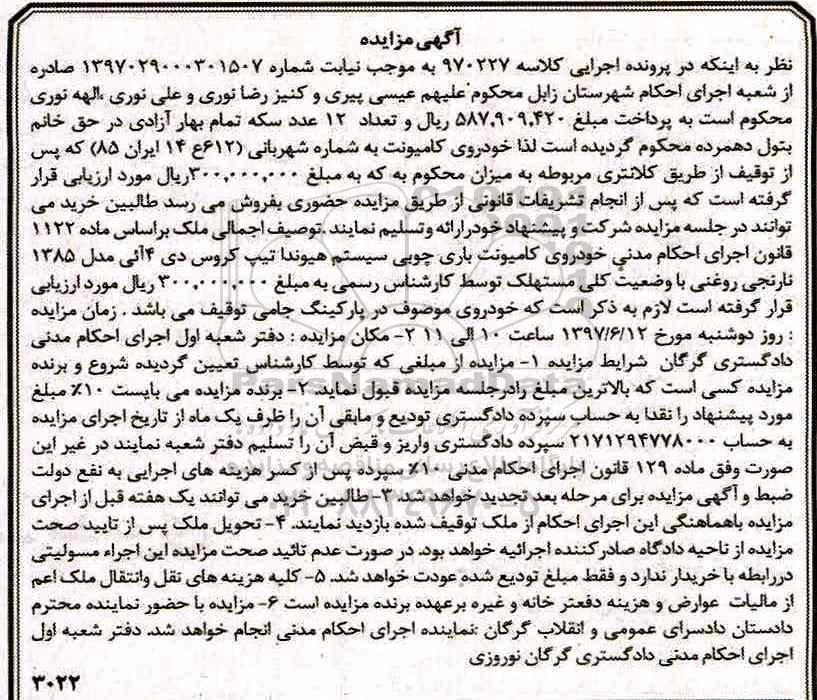 آگهی مزایده
نظر به اینکه در پرونده اجرایی کلاسه ۹۷۰۲۲۷ به موجب نیابت شماره ۱۳۹۷۰۲۹۰۰۰۳۰۱۵۰۷ صادره
از شعبه اجرای احکام شهرستان زابل محکوم علیهم عیسی پیری و کنیز رضا نوری و علی نوری ،الهه نوری
محکوم است به پرداخت مبلغ ۵۸۷,۹۰۹,۴۲۰ ریال و تعداد ۱۲ عدد سکه تمام بهار آزادی در حق خانم
بتول دهمرده محکوم گردیده است لذا خودروی کامیونت به شماره شهربانی (۶۱۲ع ۱۴ ایران ۸۵) که پس
از توقیف از طریق کلانتری مربوطه به میزان محکوم به که به مبلغ ۳۰۰,۰۰۰,۰۰۰ریال مورد ارزیابی قرار
گرفته است که پس از انجام تشریفات قانونی از طریق مزایده حضوری بفروش می رسد طالبین خرید می
توانند در جلسه مزایده شرکت و پیشنهاد خودراارائه وتسلیم نمایند .توصیف اجمالی ملک براساس ماده ۱۱۲۲
قانون اجرای احکام مدنی خودروی کامیونت باری چوبی سیستم هیوندا تیپ کروس دی ۴آئی مدل ۱۳۸۵
نارنجی روغنی با وضعیت کلی مستهلک توسط کارشناس رسمی به مبلغ ۳۰۰,۰۰۰,۰۰۰ ریال مورد ارزیابی
قرار گرفته است لازم به ذکر است که خودروی موصوف در پارکینگ جامی توقیف می باشد . زمان مزایده
: روز دوشنبه مورخ ۱۳۹۷/۶/۱۲ ساعت ۱۰ الی ۱۱ ۲- مکان مزایده : دفتر شعبه اول اجرای احکام مدنی
دادگستری گرگان شرایط مزایده ۱- مزایده از مبلغی که توسط کارشناس تعیین گردیده شروع و برنده
مزایده کسی است که بالاترین مبلغ رادرجلسه مزایده قبول نماید. ۲- برنده مزایده می بایست ۱۰٪ مبلغ
مورد پیشنهاد را نقدا به حساب سپرده دادگستری تودیع و مابقی آن را ظرف یک ماه از تاریخ اجرای مزایده
به حساب ۲۱۷۱۲۹۴۷۷۸۰۰۰ سپرده دادگستری واریز و قبض آن را تسلیم دفتر شعبه نمایند در غیر این
صورت وفق ماده ۱۲۹ قانون اجرای احکام مدنی ۱۰٪ سپرده پس از کسر هزینه های اجرایی به نفع دولت
ضبط و آگهی مزایده برای مرحله بعد تجدید خواهد شد. ۳- طالبین خرید می توانند یک هفته قبل از اجرای
مزایده باهماهنگی این اجرای احکام از ملک توقیف شده بازدید نمایند. ۴- تحویل ملک پس از تایید صحت
مزایده از ناحیه دادگاه صادرکننده اجرائیه خواهد بود. در صورت عدم تائید صحت مزایده این اجراء مسولیتی
دررابطه با خریدار ندارد و فقط مبلغ تودیع شده عودت خواهد شد. ۵- کلیه هزینه های نقل وانتقال ملک اعم
از مالیات عوارض و هزینه دفعتر خانه و غیره برعهده برنده مزایده است ۶- مزایده با حضور نماینده محترم
دادستان دادسرای عمومی و انقلاب گرگان ،نماینده اجرای احکام مدنی انجام خواهد شد. دفتر شعبه اول
اجرای احکام مدنی دادگستری گرگان نوروزی
۳۰۲۲
ParsNamadData